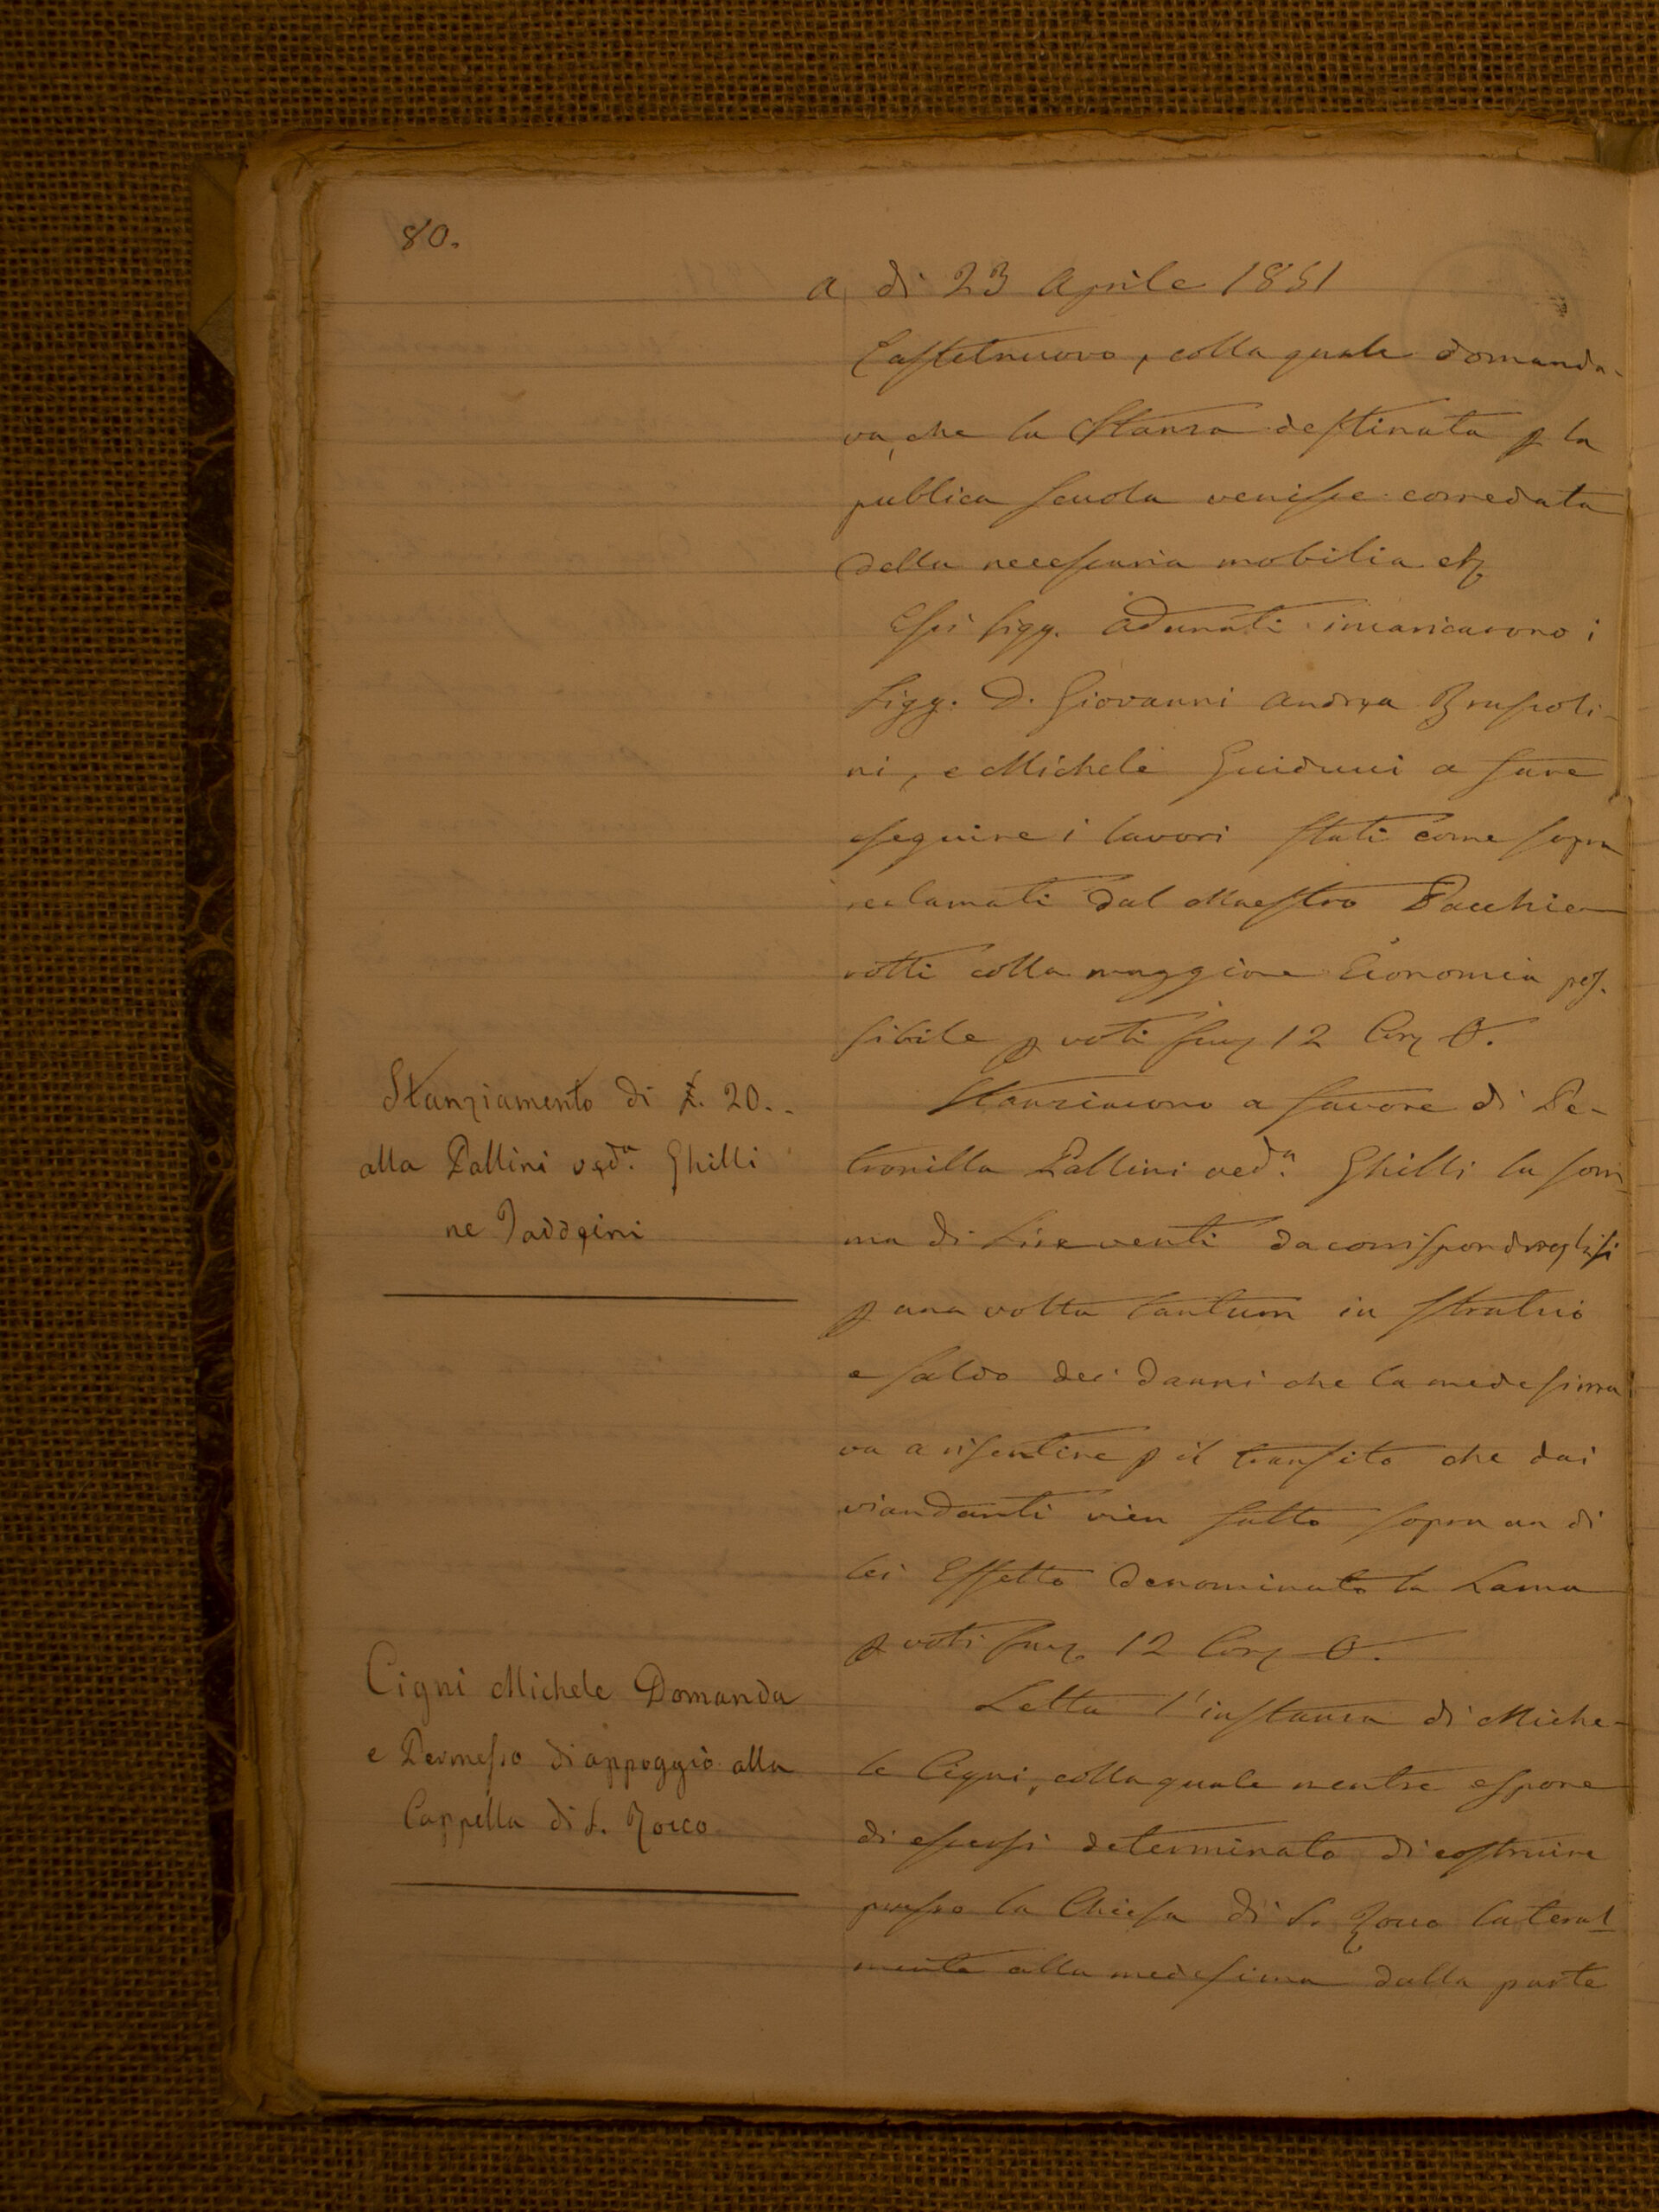 80.
a dì 23 Aprile 1851
Castelnuovo, colla quale domanda-
va, che la Stanza destinata p la
publica scuola venisse corredata
della necessaria mobilia etc
Essi Sigg. Adunati incaricarono i
Sigg. D. Giovanni Andrea Brussoli-
ni, e Michele Guiducci a fare
eseguire i lavori stati come sopra
reclamati dal Maestro Pacchie-
rotti colla maggiore Economia pos-
sibile p voti fav 12 Con 0.
Stanziamento di £. 20..
alla Pallini ved.a Ghilli
ne Taddeini
Stanziarono a favore di Pe-
tronilla Pallini ved.a Ghilli la som-
ma di Lire venti da corrispondereglisi
p una volta tantum in stralcio
e saldo dei danni che la medesima
va a risentire p il transito che dai
viandanti vien fatto sopra un di
lei Effetto denominato la Lama
p voti fav. 12 Con 0.
Cigni Michele Domanda
e Permesso di appoggio alla
Cappella di S. Rocco
Letta l'instanza di Miche-
le Cigni, colla quale mentre espone
di essersi determinato di costruire
presso la Chiesa di S. Rocco lateral
mente alla medesima dalla parte